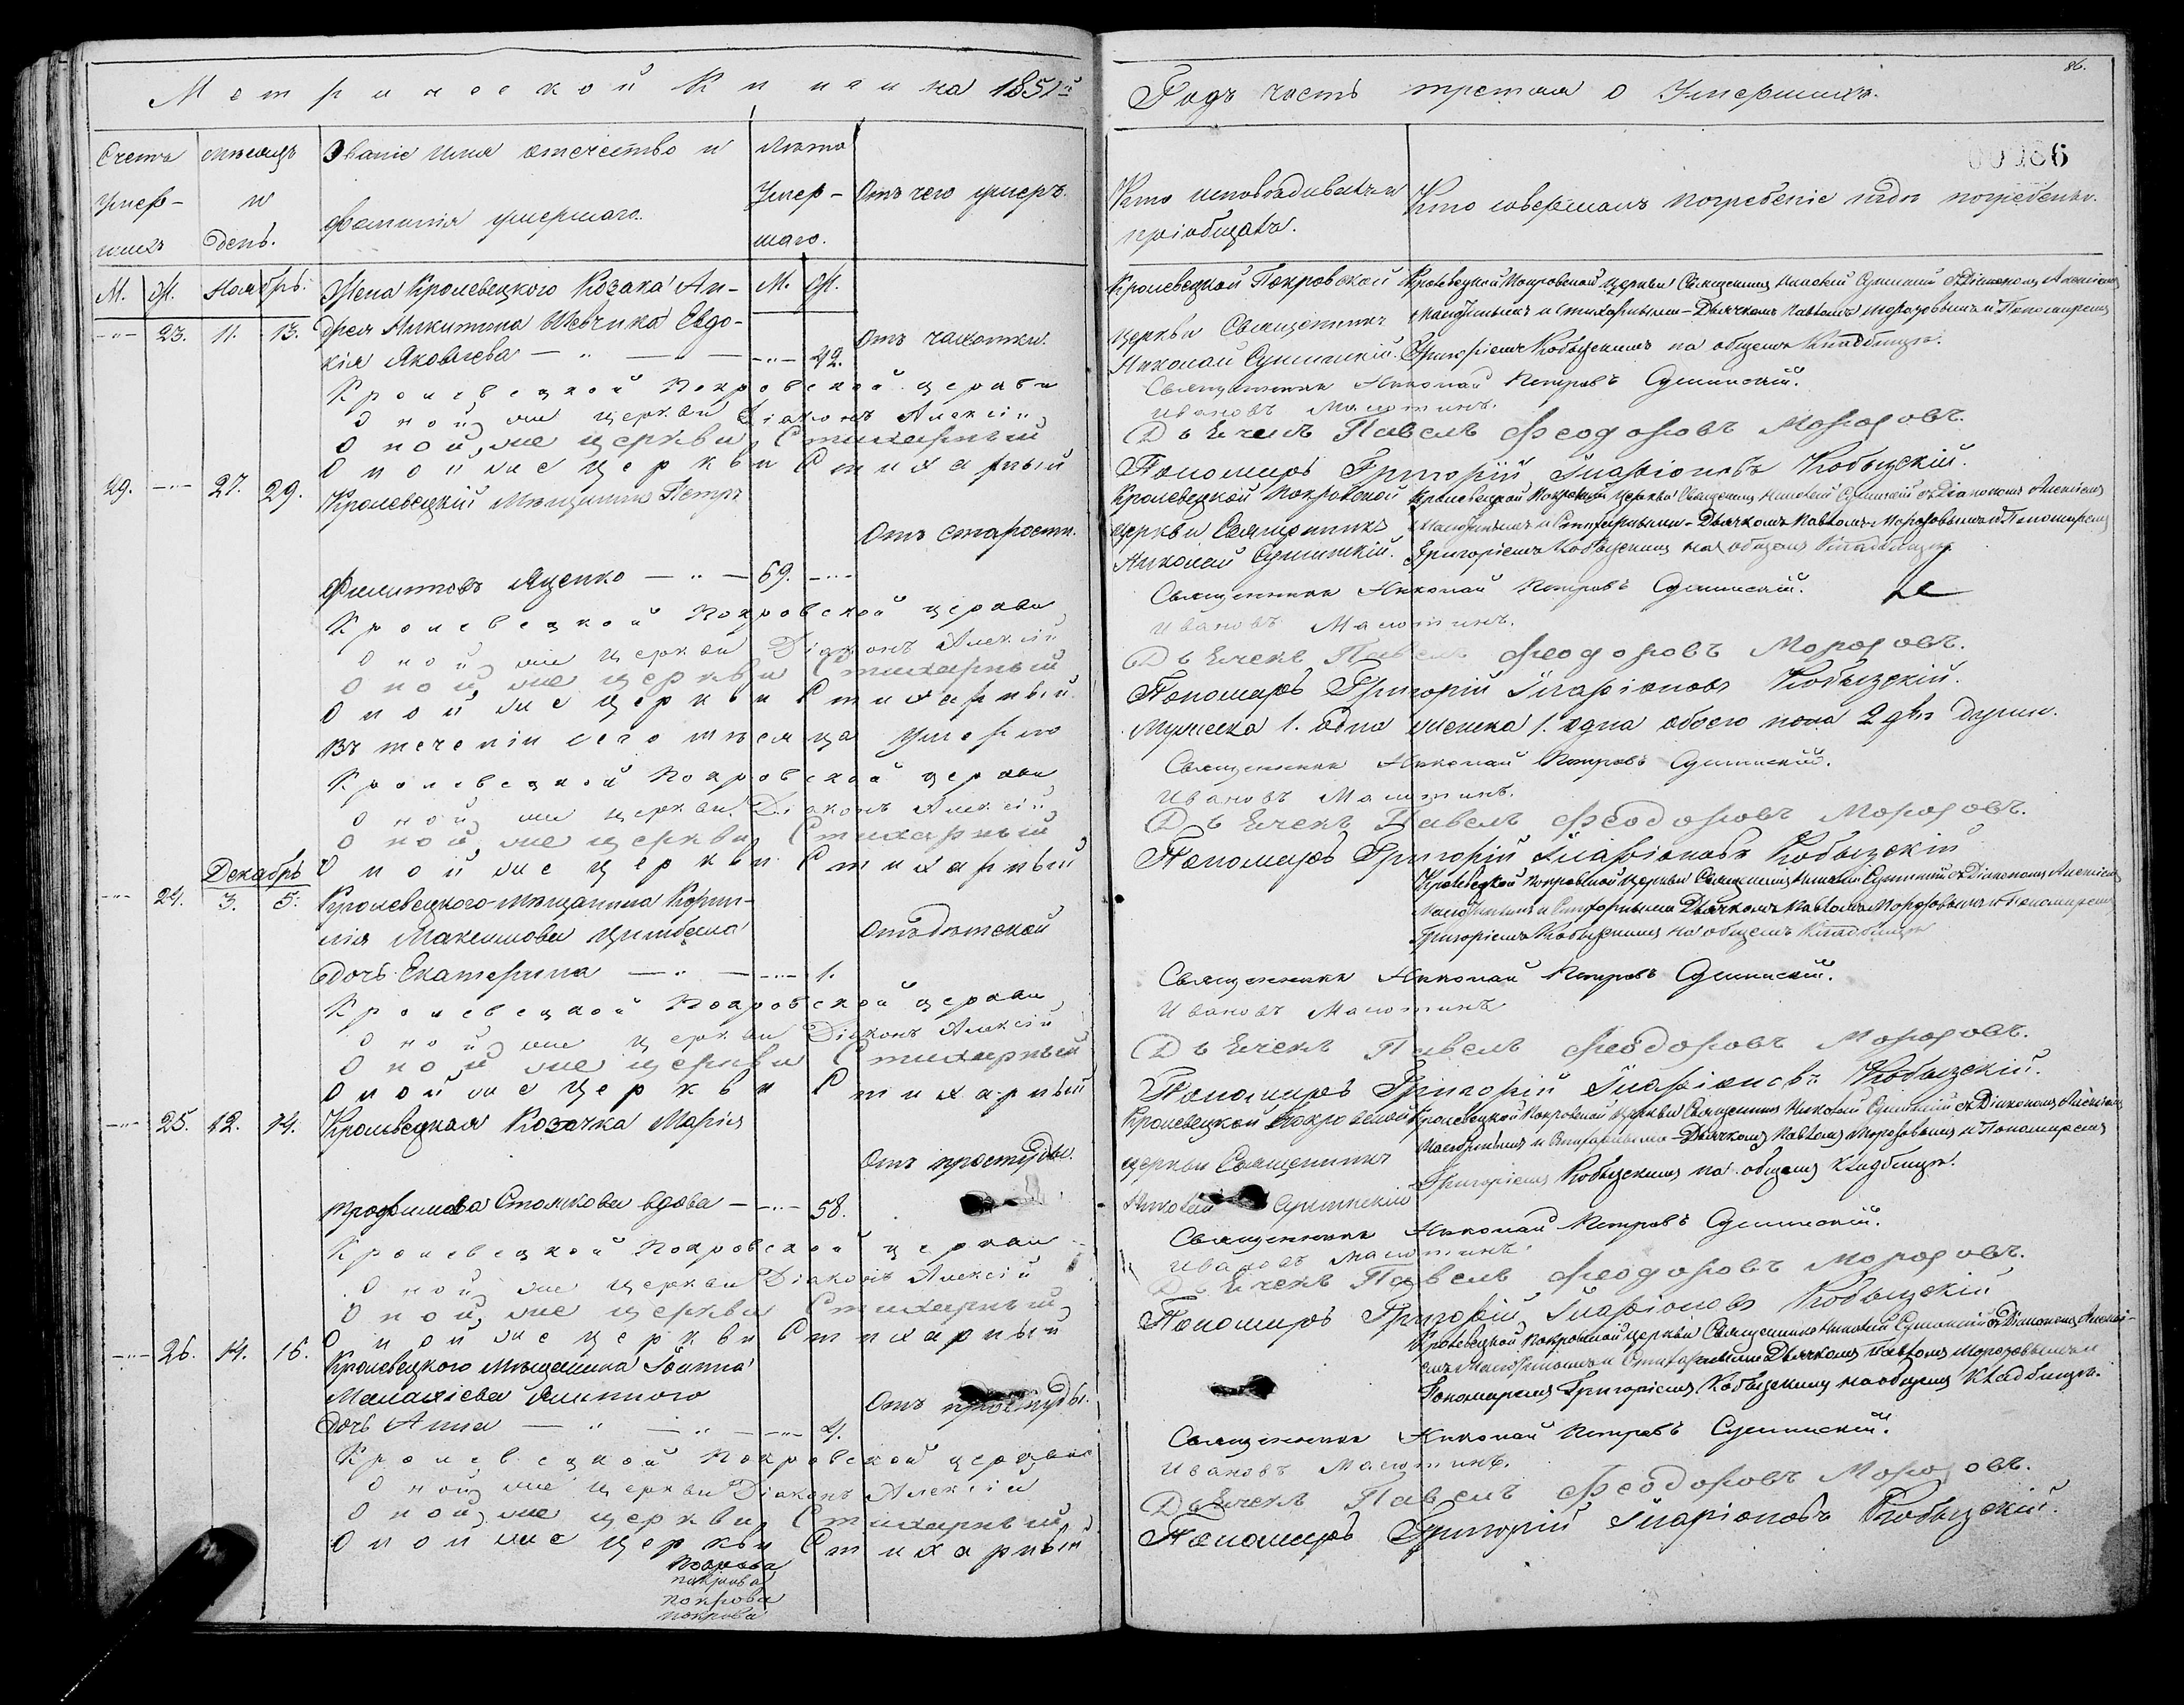 Метрической Книги на 1851й
Годъ часть третия о Умершихъ.
86.
00086
Счетъ умер-шихъ
Мѣсяцъ и день.
Званіе имя отечество и фамилія умершаго.
Лѣта Умер-шаго.
Отъ чего умеръ.
Кто исповѣдивалъ и пріобщалъ.
Кто совершалъ погребеніе и гдѣ погребены.
М. Ж. Ноябрь. М. Ж.
23. 11. 13. Жена Кролевецкого Козака Ан-
дрея Никитина Шевчика Евдо-
кія Яковлева 42. Отъ чахотки.
Кролевецкой Покровской церкви Священникъ Николай Сушинскій.
Кролевецкой Покровской церкви Священникъ Николай Сушинскій съ Діакономъ Алексіемъ
Малютинымъ и Стихарными - Дьячкомъ Павломъ Морозовымъ и Пономаремъ
Григоріемъ Кобызскимъ на общемъ Кладбищѣ.
Кролевецкой Покровской церкви Священникъ Николай Петровъ Сушинскій.
Оной же церкви Діаконъ Алексій Ивановъ Малютинъ.
Оной же церкви Стихарный Дьячекъ Павелъ Феодоровъ Морозовъ.
Оной же церкви Стихарный Пономарь Григорій Иларіоновъ Кобызскій.
29. 27. 29. Кролевецкій Мѣщанинъ Петръ
Филиповъ Яценко 69. Отъ старости.
Кролевецкой Покровской церкви Священникъ Николай Сушинскій.
Кролевецкой Покровской церкви Священникъ Николай Сушинскій съ Діакономъ Алексіемъ
Малютинымъ и Стихарными - Дьячкомъ Павломъ Морозовымъ и Пономаремъ
Григоріемъ Кобызскимъ на общемъ Кладбищѣ
Кролевецкой Покровской церкви Священникъ Николай Петровъ Сушинскій.
Оной же церкви Діаконъ Алексій Ивановъ Малютинъ.
Оной же церкви Стихарный Дьячекъ Павелъ Феодоровъ Морозовъ.
Оной же церкви Стихарный Пономарь Григорій Иларіоновъ Кобызскій.
Въ теченіи сего мѣсяца умерло Мужеска 1. одно женска 1. одна обоего пола 2 двѣ души.
Кролевецкой Покровской церкви Священникъ Николай Петровъ Сушинскій.
Оной же церкви Діаконъ Алексій Ивановъ Малютинъ.
Оной же церкви Стихарный Дьячекъ Павелъ Феодоровъ Морозовъ.
Оной же церкви Стихарный Пономарь Григорій Иларіоновъ Кобызскій
Декабрь
24. 3. 5. Кролевецкого мѣщанина Корни-
лія Максимова
дочь Екатерина 1. Отъ дѣтской
Кролевецкой Покровской церкви Священникъ Николай Сушинскій съ Діакономъ Алексіемъ
Малютинымъ и Стихарными Дьячкомъ Павломъ Морозовымъ и Пономаремъ
Григоріемъ Кобызскимъ на общемъ Кладбищѣ
Кролевецкой Покровской церкви Священникъ Николай Петровъ Сушинскій.
Оной же церкви Діаконъ Алексій Ивановъ Малютинъ
Оной же церкви Стихарный Дьячекъ Павелъ Феодоровъ Морозовъ.
Оной же церкви Стихарный Пономарь Григорій Иларіоновъ Кобызскій.
25. 12. 14. Кролевецкая Козачка Марія
Трофимова вдова 58. Отъ простуды.
Кролевецкой Покровской церкви Священникъ Николай Сушинскій
Кролевецкой Покровской церкви Священникъ Николай Сушинскій съ Діакономъ Алексіемъ
Малютинымъ и Стихарными - Дьячкомъ Павломъ Морозовымъ и Пономаремъ
Григоріемъ Кобызскимъ на общемъ Кладбищѣ.
Кролевецкой Покровской церкви Священникъ Николай Петровъ Сушинскій.
Оной же церкви Діаконъ Алексій Ивановъ Малютинъ.
Оной же церкви Стихарный Дьячекъ Павелъ Феодоровъ Морозовъ.
Оной же церкви Стихарный Пономарь Григорій Иларіоновъ Кобызскій
26. 14. 16. Кролевецкого мѣщанина Іоанна
Малахіева
дочь Анна 4. Отъ простуды.
Кролевецкой Покровской церкви Священникъ Николай Сушинскій съ Діакономъ Алексі-
емъ Малютинымъ и Стихарными Дьячкомъ Павломъ Морозовымъ и
Пономаремъ Григоріемъ Кобызскимъ на общемъ Кладбищѣ.
Кролевецкой Покровской церкви Священникъ Николай Петровъ Сушинскій.
Оной же церкви Діаконъ Алексій Ивановъ Малютинъ.
Оной же церкви Стихарный Дьячекъ Павелъ Феодоровъ Морозовъ.
Оной же церкви Стихарный Пономарь Григорій Иларіоновъ Кобызскій.
Покрова
покрова
покрова
покрова